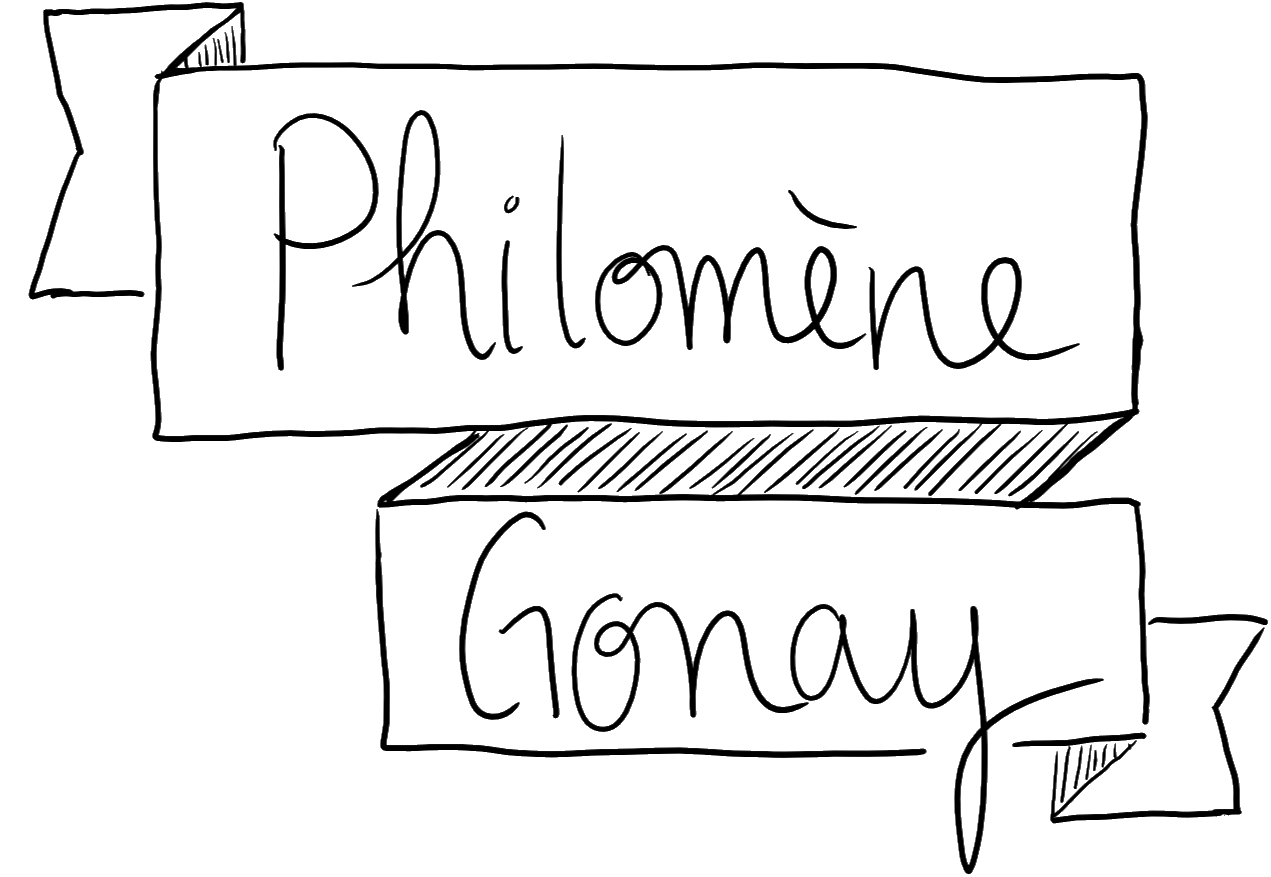 Philomène
Gonay